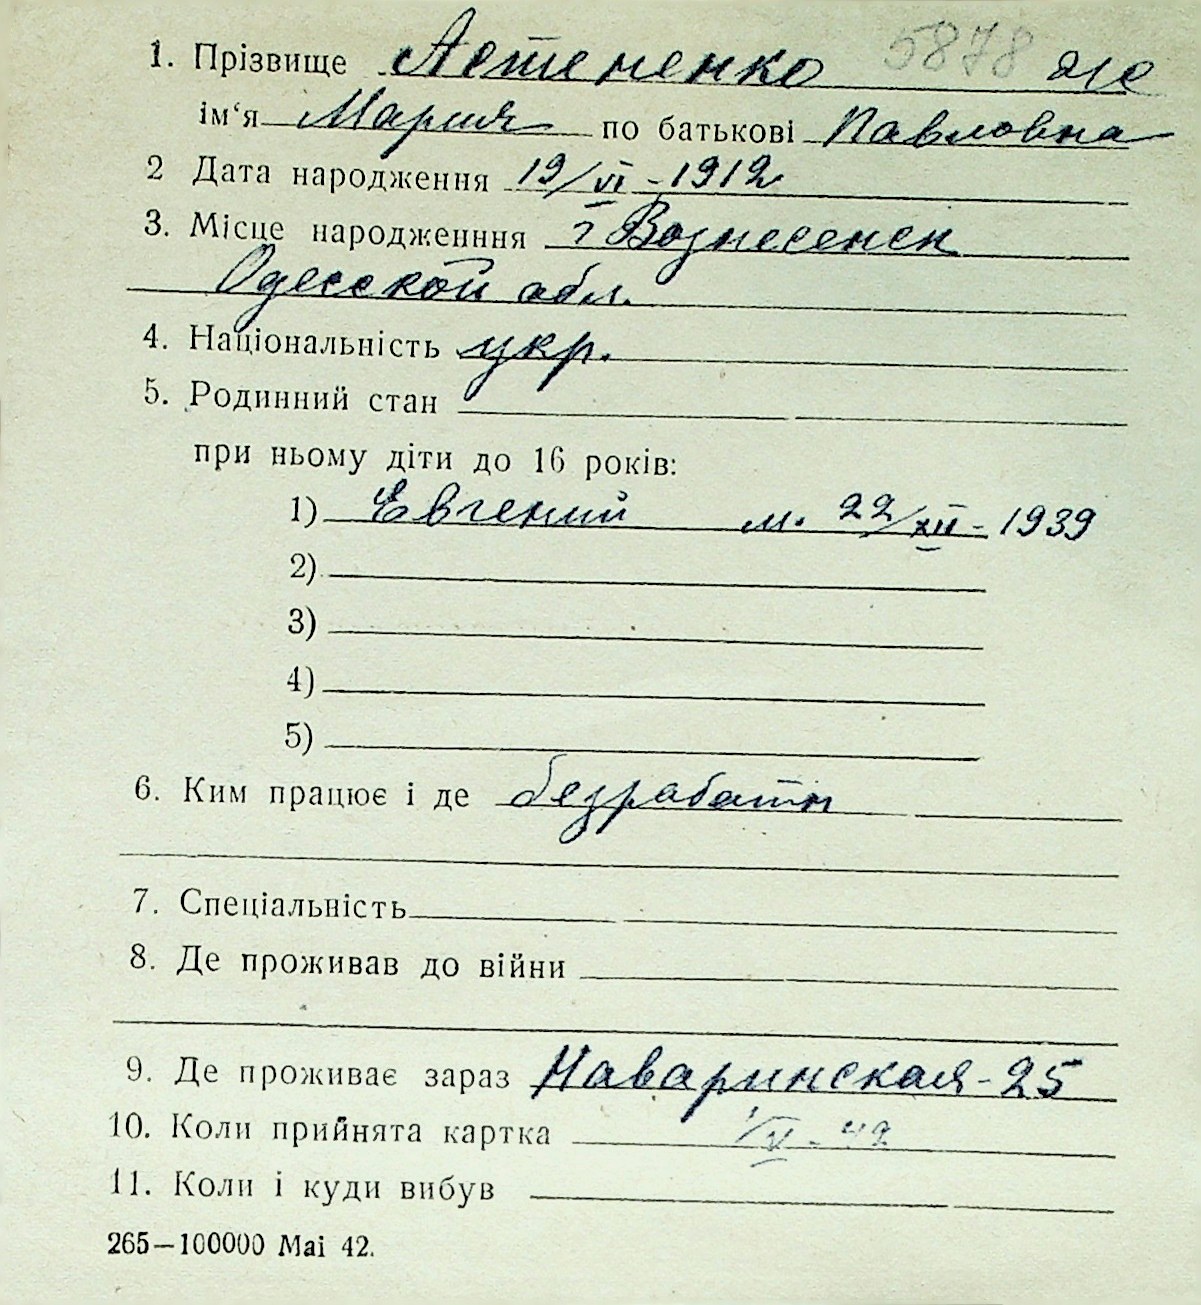 1. Прізвище Астененко 5878 же
ім‘я Мария по батькові Павловна
2 Дата народження 19/VI - 1912
3. Місце народженння г Вознесенск
Одесской обл.
4. Національність укр.
5. Родинний стан
при ньому діти до 16 років:
1) Евгений м. 22/XII - 1939
2)
3)
4)
5)
6. Ким працює і де безработн
7. Спеціальність
8. Де проживав до війни
9. Де проживає зараз Наваринская - 25
10. Коли прийнята картка 1/V - 42
11. Коли і куди вибув
265—100000 Mai 42.